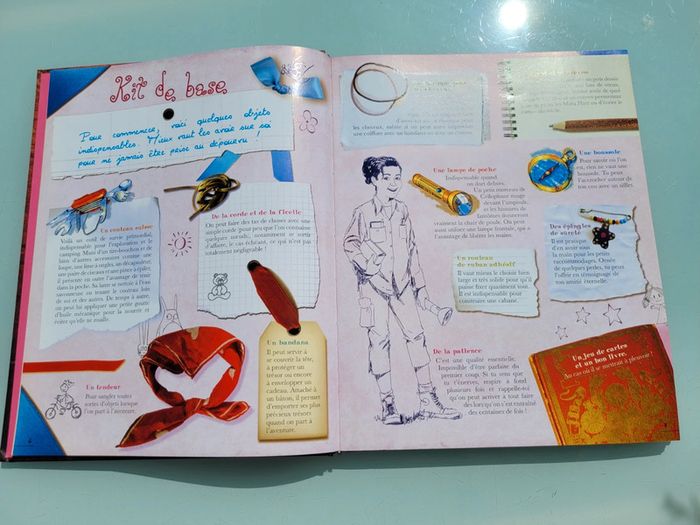 Kit de base
Pour commencer, voici quelques objets
indispensables. Mieux vaut les avoir sur soi
pour ne jamais être prise au dépourvu !
Un couteau suisse
Voilà un outil de survie primordial,
indispensable pour l'exploration et le
camping. Muni d'un tire-bouchon et de
bien d'autres accessoires comme une
loupe, une lime à ongles, un décapsuleur,
une paire de ciseaux et une pince à épiler,
il présente en outre l'avantage de tenir
dans la poche. Sa lame se nettoie à l'eau
savonneuse en tenant le couteau loin
de soi et des autres. De temps à autre,
on peut lui appliquer une petite goutte
d'huile mécanique pour la nourrir et
éviter qu'elle ne rouille.
De la corde et de la ficelle
On peut faire des tas de choses avec une
simple corde pour peu que l'on connaisse
quelques nœuds, notamment se sortir
d'affaire, le cas échéant, ce qui n'est pas
totalement négligeable !
Un tendeur
Pour sangler toutes
sortes d'objets lorsque
l'on part à l'aventure.
Un bandana
Il peut servir à
se couvrir la tête,
à protéger un
trésor ou encore
à envelopper un
cadeau. Attaché à
un bâton, il permet
d'emporter ses plus
précieux trésors
quand on part à
l'aventure.
les cheveux, même si on peut aussi improviser
une coiffure avec un bandana ou avec un
Une lampe de poche
Indispensable quand
on dort dehors.
Un petit morceau de
Cellophane rouge
devant l'ampoule,
et les histoires de
fantômes donneront
vraiment la chair de poule. On peut
aussi utiliser une lampe frontale, qui a
l'avantage de libérer les mains.
Une boussole
Pour savoir où l'on
est, rien ne vaut une
boussole. Tu peux
l'accrocher autour de
ton cou avec un sifflet.
Des épingles
de sûreté
Il est pratique
d'en avoir sous
la main pour les petits
raccommodages. Ornée
de quelques perles, tu peux
l'offrir en témoignage de
ton amitié éternelle.
Un rouleau
de ruban adhésif
Il vaut mieux le choisir bien
large et très solide pour qu'il
puisse fixer quasiment tout.
Il est indispensable pour
construire une cabane.
De la patience
C'est une qualité essentielle.
Impossible d'être parfaite du
premier coup. Si tu sens que
tu t'énerves, respire à fond
plusieurs fois et rappelle-toi
qu'on peut arriver à tout faire
dès lors qu'on s'est entraîné
des centaines de fois !
Un jeu de cartes
et un bon livre.
Au cas où il se mettrait à pleuvoir !